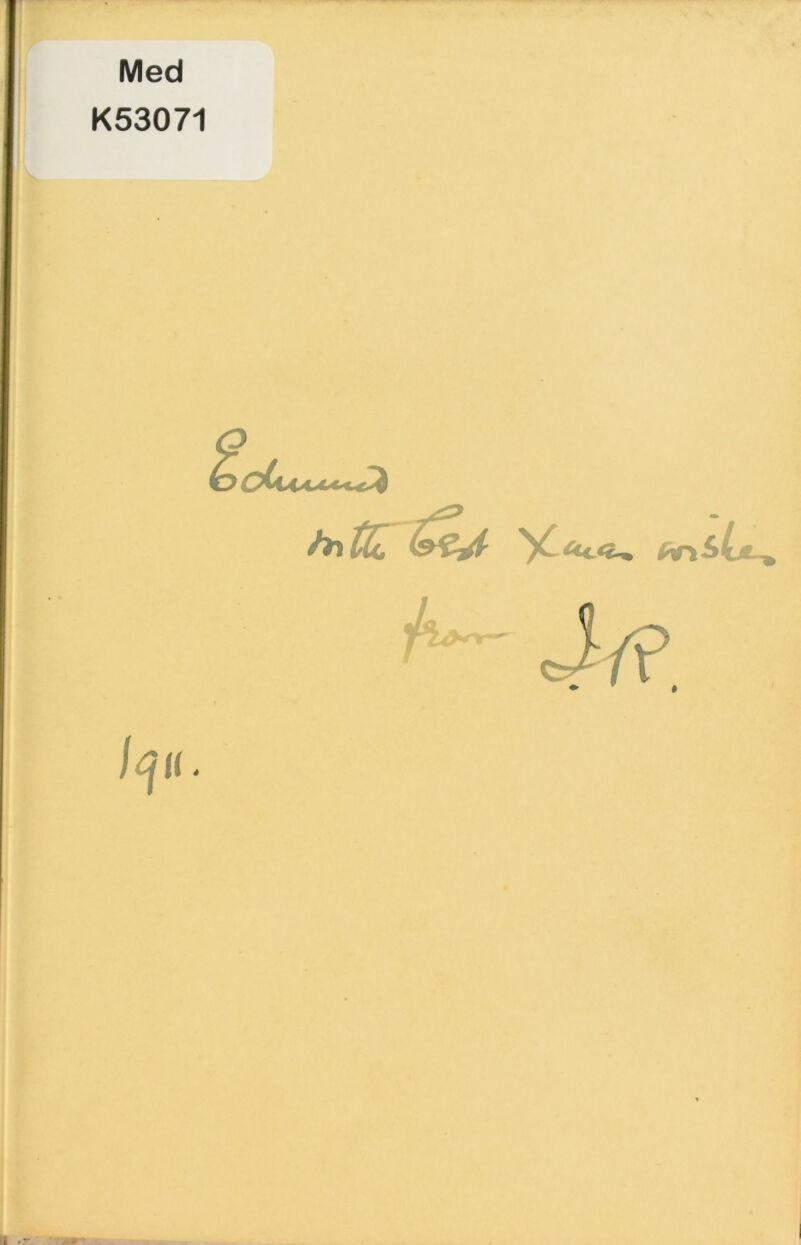 Med
K53071
Edmund
with best Xmas wishes
from J.R.
1911.